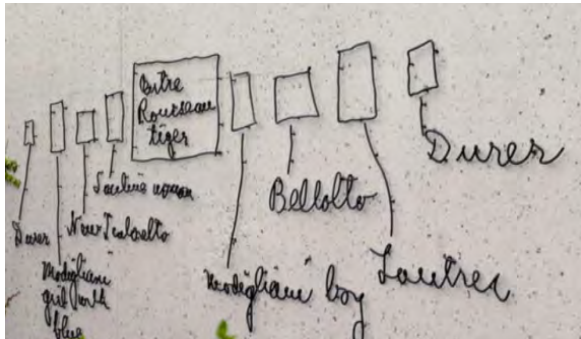 Entre
Rousseau
tiger
Durer
Modigliani
girl with
blue
New Tintoretto
Soutine woman
Modigliani boy
Bellotto
Lautrec
Durer